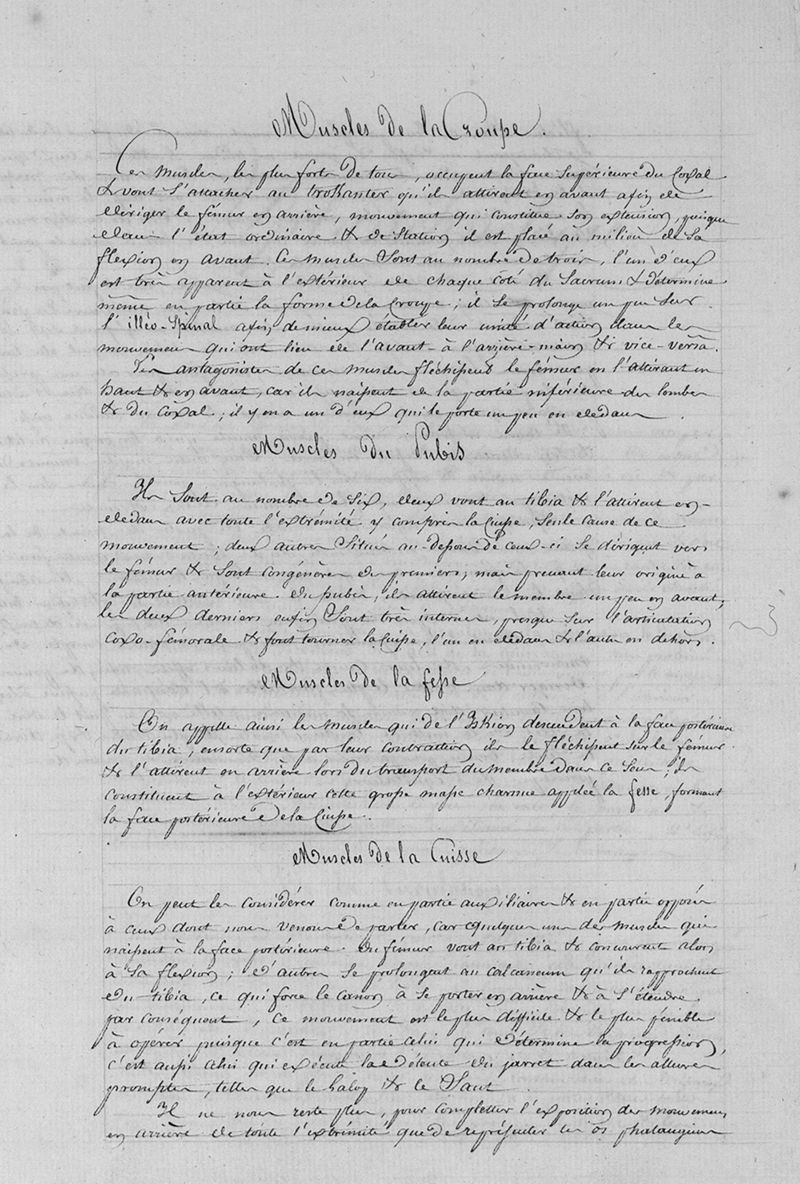 Muscles de la Croupe.
Ces muscles, les plus forts de tous, occupent la face supérieure du Coxal
& vont s'attacher au trokanter qu'ils attirent en avant afin de
diriger le fémur en arrière, mouvement qui constitue son extension, puisque
dans l'état ordinaire & de Station il est placé au milieu de sa
flexion en avant. Ces muscles sont au nombre de trois, l'un d'eux
est très apparent à l'extérieur de chaque coté du Sacrum & détermine
même en partie la forme de la Croupe; il se prolonge un peu sur
l'illéo-Spinal afin de mieux établer leur unité d'action dans les
mouvemens qui ont lieu de l'avant-à l'arrière-main & vice-versà.
Les antagonistes de ces muscles fléchissent le fémur en l'attirant en
haut & en avant, car ils naissent de la partie inférieure des lombes
& du Coxal; il y en a un d'eux qui le porte un peu en dedans.
Muscles du Pubis
Ils sont au nombre de Six, deux vont au tibia & l'attirent en-
dedans avec toute l'extrémité y compris la Cuisse, Seule Cause de ce
mouvement; deux autres Situés au-dessous de Ceux-ci se dirigent vers
le fémur & sont congénères des premiers; mais prenant leur origine à
la partie antérieure du pubis, ils attirent le membre un peu en avant;
les deux derniers enfin sont très internes, presque sur l'articulation
Coxo-fémorale & font tourner la Cuisse, l'un en dedans & l'autre en dehors.
Muscles de la fesse
On appelle ainsi les muscles qui de l'Iskion descendent à la face postérieure
du tibia, ensorte que par leur contraction ils le fléchissent sur le fémur
& l'attirent en arrière lors du transport du membre dans ce Sens; ils
constituent à l'extérieur cette grosse masse charnue appelée la fesse, formant
la face postérieure de la Cuisse.
Muscles de la Cuisse
On peut les considérer comme en partie auxiliaires & en partie opposés
à ceux dont nous venons de parler, car quelques uns des muscles qui
naissent à la face postérieure du fémur vont au tibia & concourent alors
à sa flexion; d'autres se prolongent au calcaneum qu'ils rapprochent
du tibia, ce qui force le canon à se porter en arrière & à s'étendre
par conséquent, ce mouvement est le plus difficile & le plus pénible
à opérer puisque c'est en partie celui qui détermine la progression,
c'est aussi celui qui exécute la détente du jarret dans les allures
promptes, telles que le Galop & le Saut.
Il ne nous reste plus, pour completter l'exposition des mouvemens
en arrière de toute l'extrémité que de représenter les os phalangiens